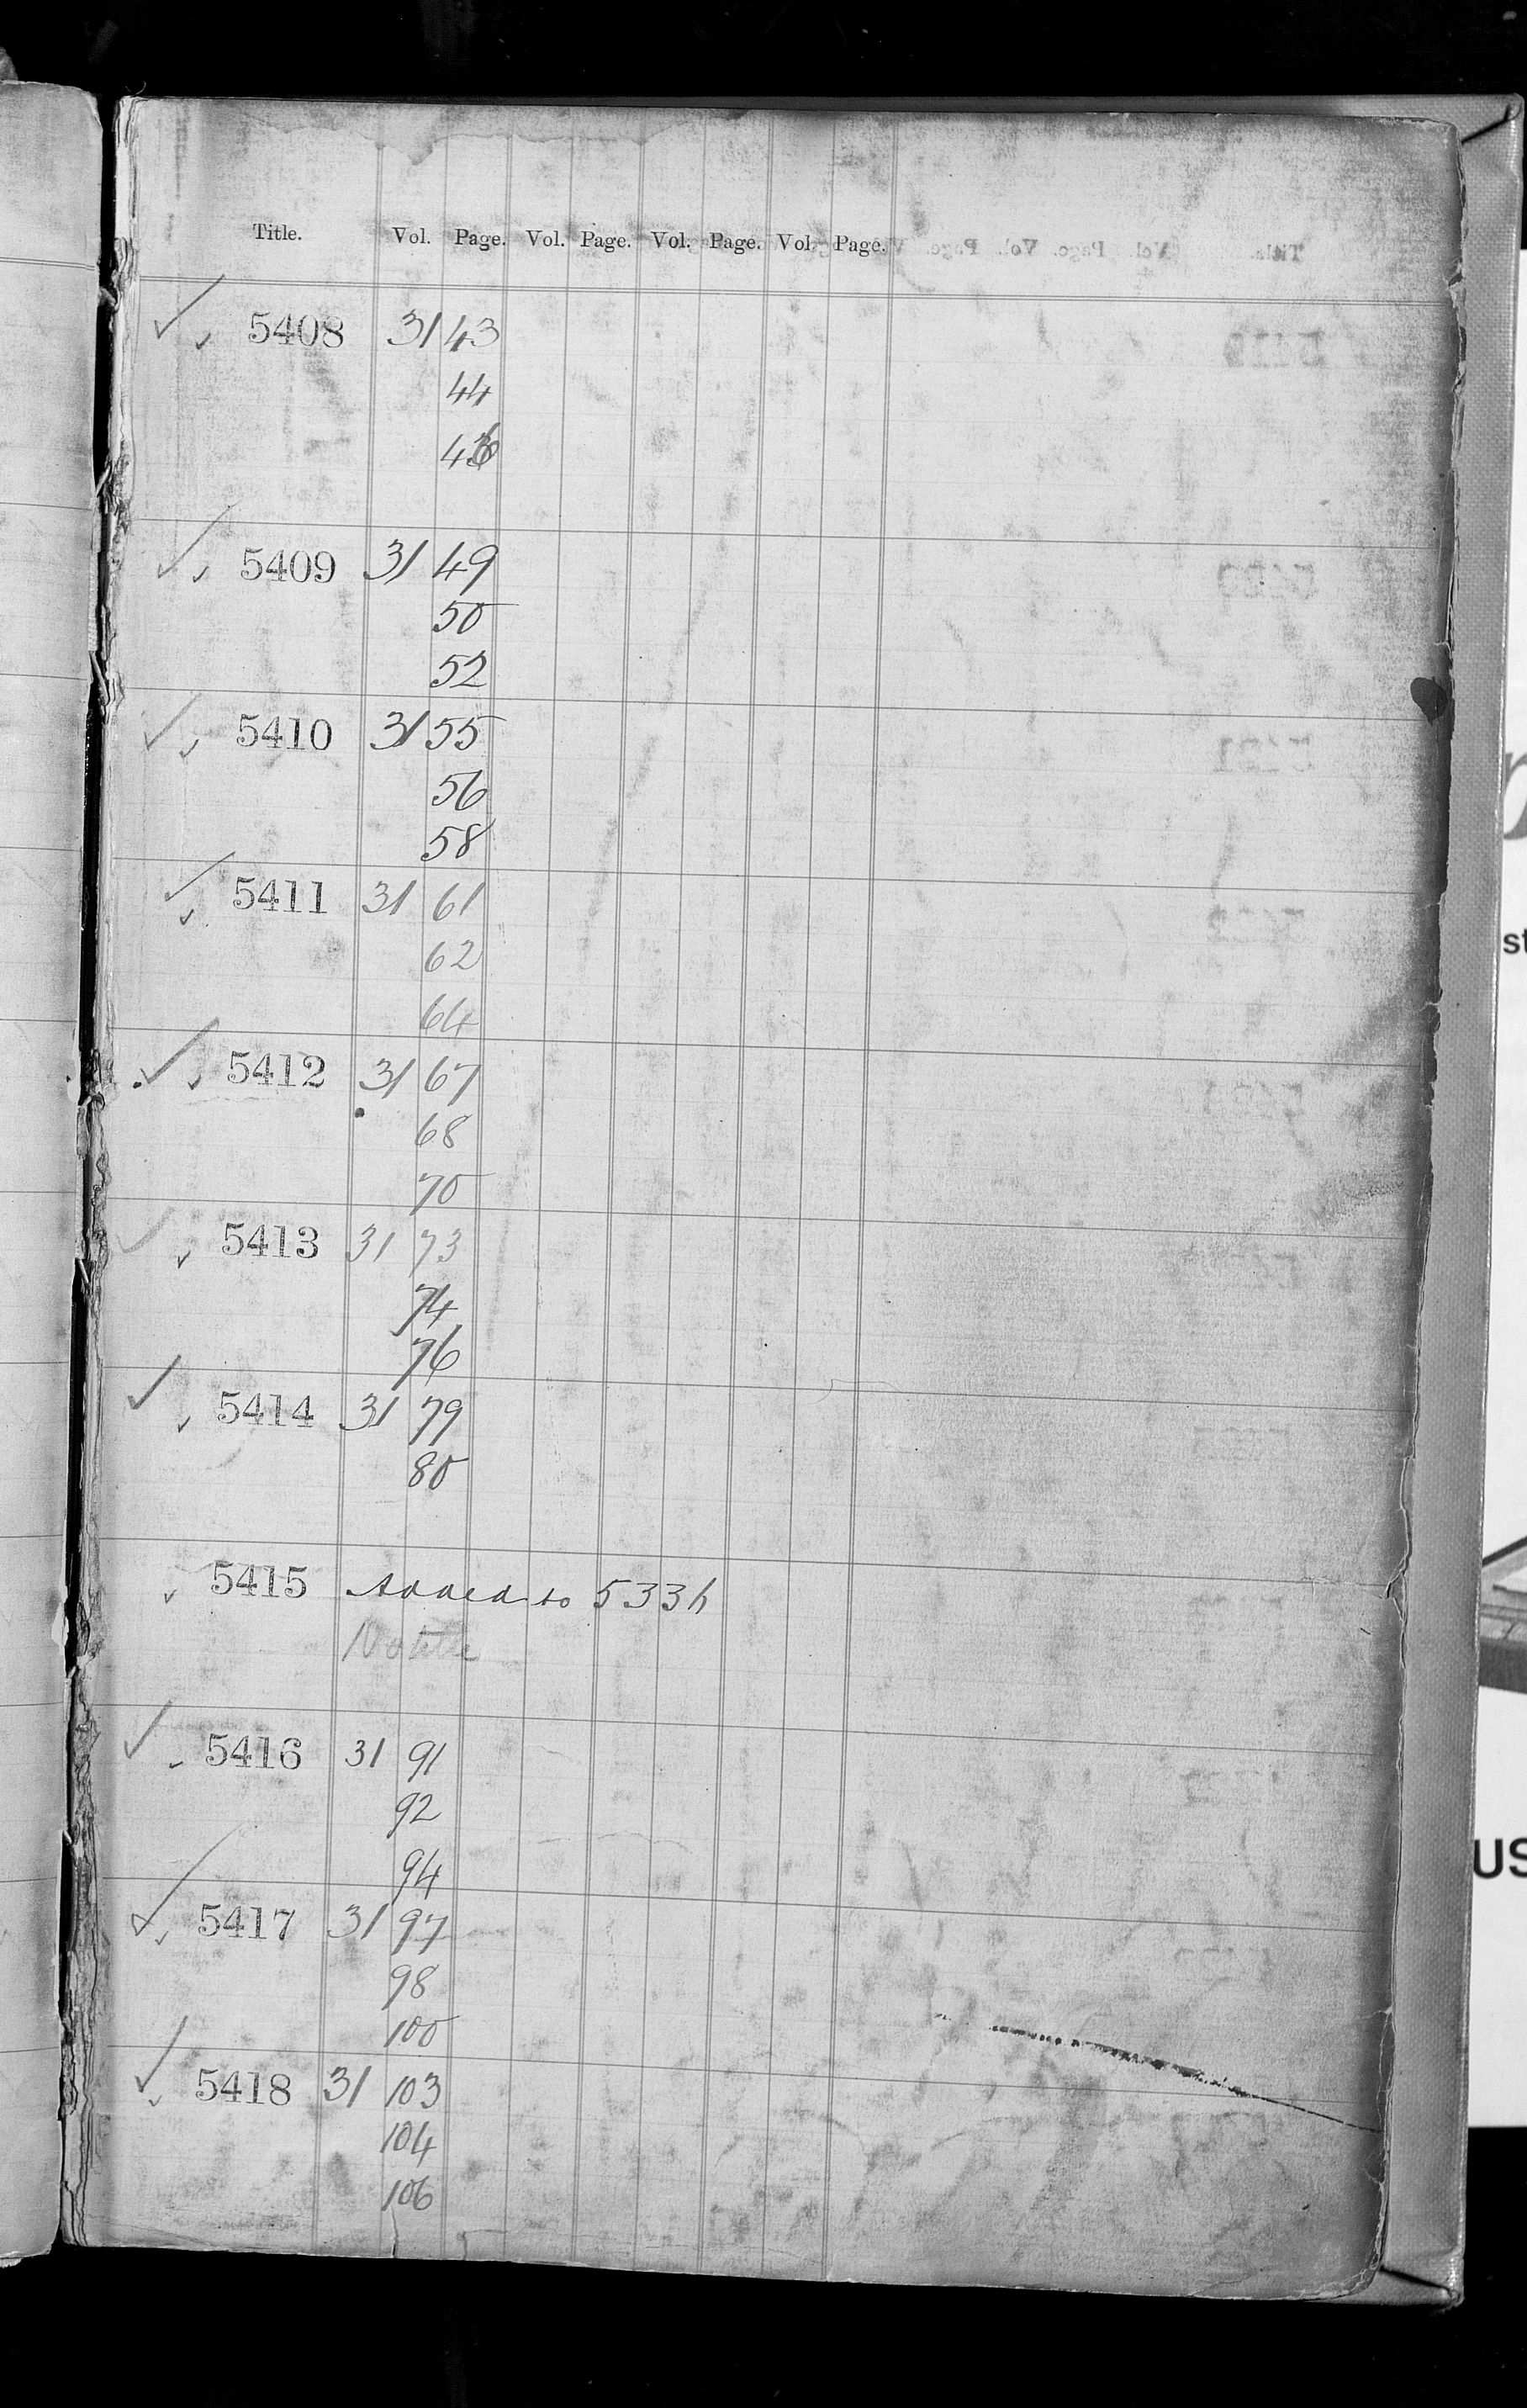 Title. Vol. Page. Vol. Page. Vol. Page. Vol. Page.
✓ ✓ 5408 31 43
44
46
✓ ✓ 5409 31 49
50
52
✓ ✓ 5410 31 55
56
58
✓ ✓ 5411 31 61
62
64
✓ ✓ 5412 31 67
68
70
✓ ✓ 5413 31 73
74
76
✓ ✓ 5414 31 79
80
✓ 5415 Added to 5336
No title
✓ ✓ 5416 31 91
92
94
✓ ✓ 5417 31 97
98
100
✓ ✓ 5418 31 103
104
106